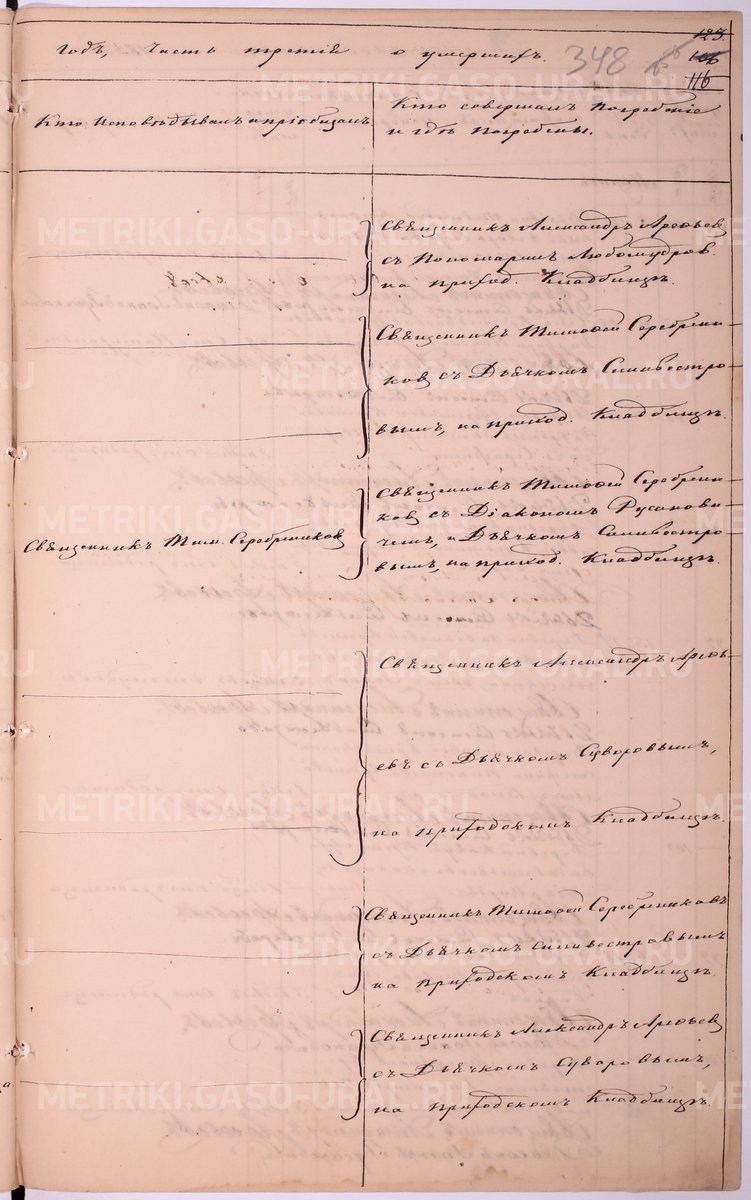 годъ, часть третія о умершихъ.
348
123.
106
116
Кто исповѣдывалъ и пріобщалъ
Кто совершалъ погребеніе
и гдѣ погребены.
Священникъ Александръ Арефьев
съ Пономарем Любомудров.
на приход. Кладбищѣ.
Священникъ Тимофей Серебрени-
ков съ Дьячкомъ Силивестро-
вымъ, на приход. Кладбищѣ.
Священникъ Тим. Серебреников
Священникъ Тимофей Серебрени-
ков съ Діакономъ Русанови-
чемъ, и Дьячкомъ Силивестро-
вымъ, на приход. Кладбищѣ.
Священникъ Александръ Арефь-
евъ съ Дьячкомъ Суворовымъ,
на приходскомъ Кладбищѣ.
Священникъ Тимофей Серебрениковъ
съ Дьячкомъ Силивестровымъ
на приходскомъ Кладбищѣ.
Священникъ Александръ Арефьев
съ Дьячкомъ Суворовымъ,
на приходскомъ Кладбищѣ.
METRIKI.GASO-URAL.RU